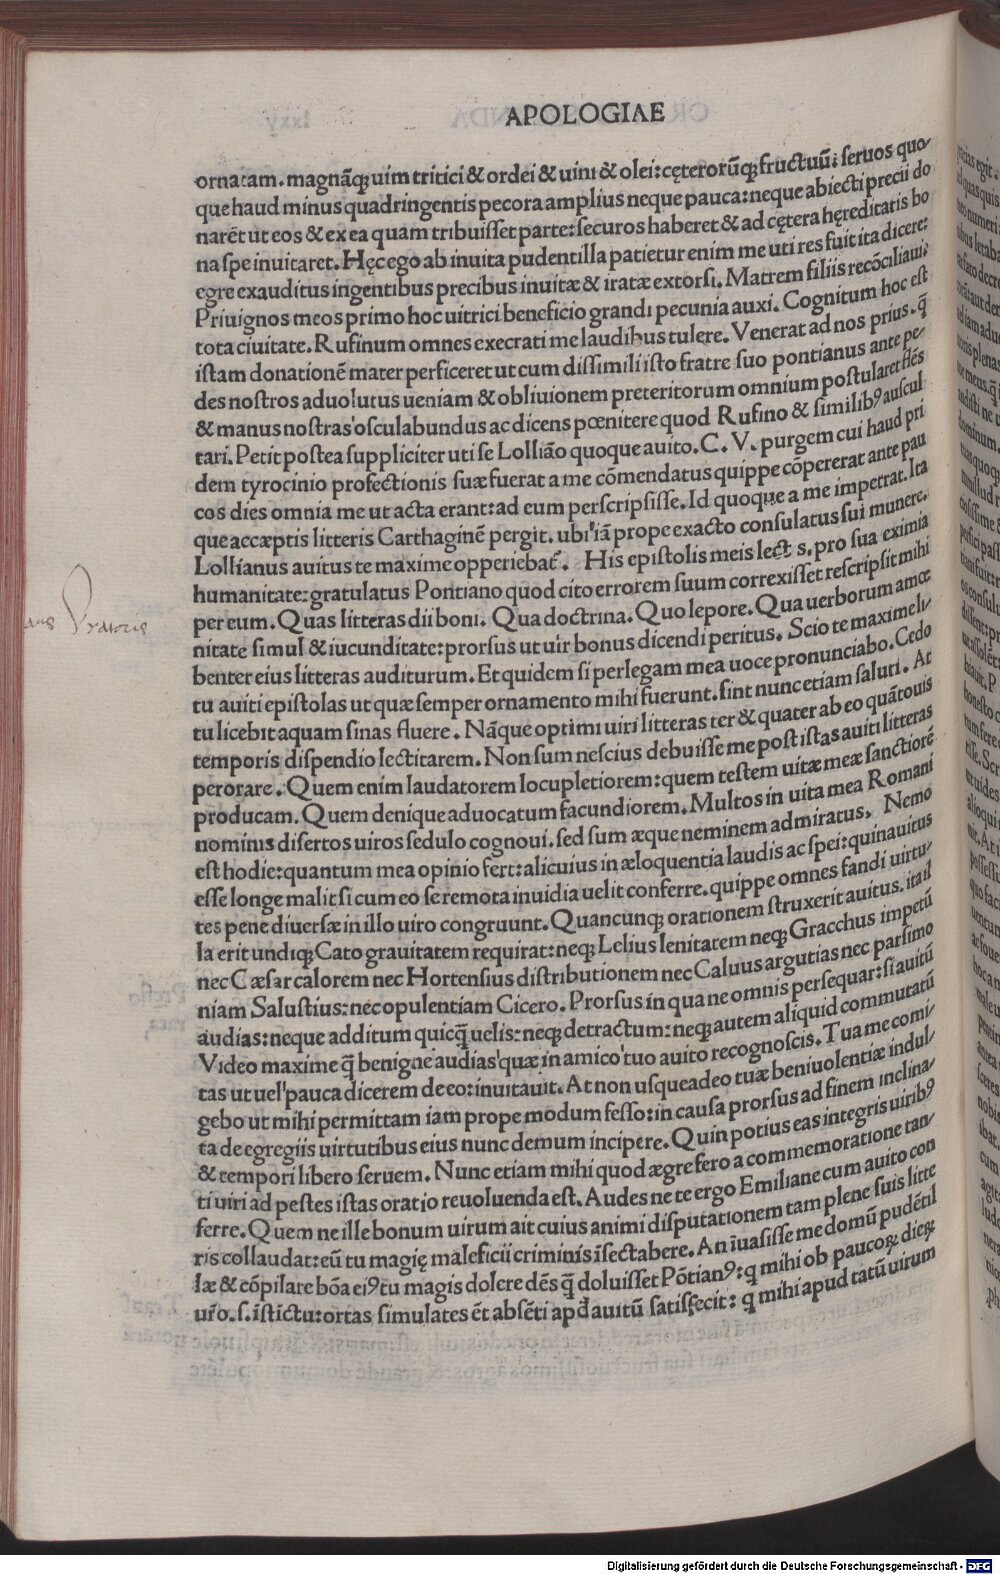 APOLOGIAE
ornatam. magnāq; uim tritici & ordei & uini & olei: cęterorūq; fructuū: seruos quo-
que haud minus quadringentis pecora amplius neque pauca: neque abiecti precii do
narēt ut eos & ex ea quam tribuisset parte: securos haberet & ad cętera hęreditatis bo
na spe inuitaret. Hęc ego ab inuita pudentilla patietur enim me uti res fuit ita dicere:
egre exauditus ingentibus precibus inuitæ & iratæ extorsi. Matrem filiis recōciliaui:
Priuignos meos primo hoc uitrici beneficio grandi pecunia auxi. Cognitum hoc est
tota ciuitate. Rufinum omnes execrati me laudibus tulere. Venerat ad nos prius. q̄
istam donationē mater perficeret ut cum dissimili isto fratre suo pontianus ante pe-
des nostros aduolutus ueniam & obliuionem preteritorum omnium postularet flēs
& manus nostras osculabundus ac dicens pœnitere quod Rufino & similibꝰ auscul
tari. Petit postea suppliciter uti se Lolliāo quoque auito. C. V. purgem cui haud pri
dem tyrocinio profectionis suæ fuerat a me cōmendatus quippe cōpererat ante pau
cos dies omnia me ut acta erant: ad eum perscripsisse. Id quoque a me impetrat. Ita
que accæptis litteris Carthaginē pergit. ubi iā prope exacto consulatus sui munere.
Lollianus auitus te maxime opperiebat̄. His epistolis meis lect s. pro sua eximia
humanitate: gratulatus Pontiano quod cito errorem suum correxisset rescripsit mihi
per eum. Quas litteras dii boni. Qua doctrina. Quo lepore. Qua uerborum amœ
nitate simul & iucunditate: prorsus ut uir bonus dicendi peritus. Scio te maxime li-
benter eius litteras auditurum. Et quidem si perlegam mea uoce pronunciabo. Cedo
tu auiti epistolas ut quæ semper ornamento mihi fuerunt. sint nunc etiam saluti. At
tu licebit aquam sinas fluere. Nāque optimi uiri litteras ter & quater ab eo quātouis
temporis dispendio lectitarem. Non sum nescius debuisse me post istas auiti litteras
perorare. Quem enim laudatorem locupletiorem: quem testem uitæ meæ sanctiorē
producam. Quem denique aduocatum facundiorem. Multos in uita mea Romani
nominis disertos uiros sedulo cognoui. sed sum æque neminem admiratus. Nemo
est hodie: quantum mea opinio fert: alicuius in æloquentia laudis ac spei: quin auitus
esse longe malit si cum eo se remota inuidia uelit conferre. quippe omnes fandi uirtu-
tes pene diuersæ in illo uiro congruunt. Quancunq; orationem struxerit auitus. ita il
la erit undiq; Cato grauitatem requirat: neq; Lelius lenitatem neq; Gracchus impetū
nec Cæsar calorem nec Hortensius distributionem nec Caluus argutias nec parsimo
niam Salustius: nec opulentiam Cicero. Prorsus in qua ne omnis persequar: si auitū
audias: neque additum quicq̄ uelis: neq; detractum: neq; autem aliquid commutatū
Video maxime q̄ benigne audias quæ in amico tuo auito recognoscis. Tua me comi-
tas ut uel pauca dicerem de eo: inuitauit. At non usqueadeo tuæ beniuolentiæ indul-
gebo ut mihi permittam iam prope modum fesso: in causa prorsus ad finem inclina-
ta de egregiis uirtutibus eius nunc demum incipere. Quin potius eas integris uiribꝰ
& tempori libero seruem. Nunc etiam mihi quod ægre fero a commemoratione tan-
ti uiri ad pestes istas oratio reuoluenda est. Audes ne te ergo Emiliane cum auito con
ferre. Quem ne ille bonum uirum ait cuius animi disputationem tam plene suis litte
ris collaudat: eū tu magię maleficii criminis īsectabere. An īuasisse me domū pudētil
læ & cōpilare bōa eiꝰ tu magis dolere dēs q̄ doluisset Pōtianꝰ: q̄ mihi ob paucoꝝ dieꝝ
uro. s. īstictu: ortas simulates ēt absēti apd̄ auitū satisfecit: q̄ mihi apud tatū uirum